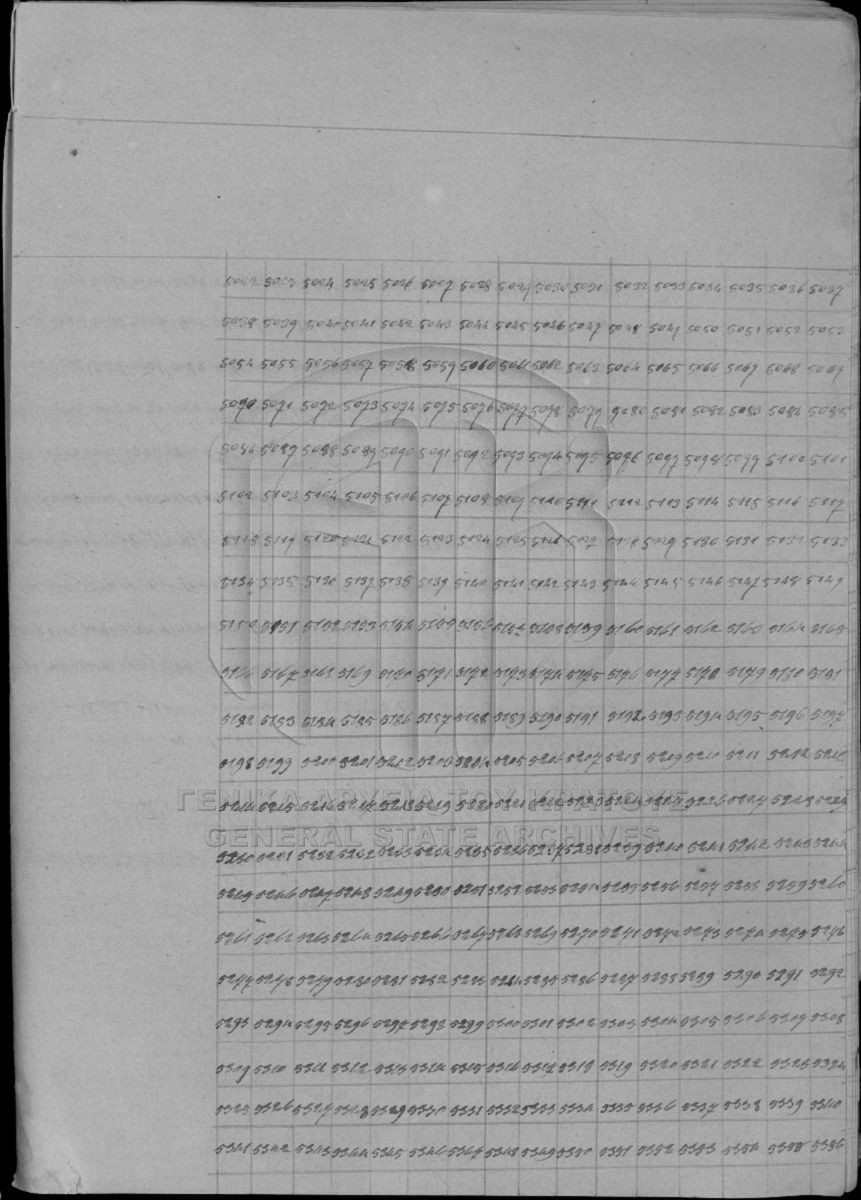 5022 5023 5024 5025 5026 5027 5028 5029 5030 5031 5032 5033 5034 5035 5036 5037
5038 5039 5040 5041 5042 5043 5044 5045 5046 5047 5048 5049 5050 5051 5052 5053
5054 5055 5056 5057 5058 5059 5060 5061 5062 5063 5064 5065 5066 5067 5068 5069
5070 5071 5072 5073 5074 5075 5076 5077 5078 5079 5080 5081 5082 5083 5084 5085
5086 5087 5088 5089 5090 5091 5092 5093 5094 5095 5096 5097 5098 5099 5100 5101
5102 5103 5104 5105 5106 5107 5108 5109 5110 5111 5112 5113 5114 5115 5116 5117
5118 5119 5120 5121 5122 5123 5124 5125 5126 5127 5128 5129 5130 5131 5132 5133
5134 5135 5136 5137 5138 5139 5140 5141 5142 5143 5144 5145 5146 5147 5148 5149
5150 5151 5152 5153 5154 5155 5156 5157 5158 5159 5160 5161 5162 5163 5164 5165
5166 5167 5168 5169 5170 5171 5172 5173 5174 5175 5176 5177 5178 5179 5180 5181
5182 5183 5184 5185 5186 5187 5188 5189 5190 5191 5192 5193 5194 5195 5196 5197
5198 5199 5200 5201 5202 5203 5204 5205 5206 5207 5208 5209 5210 5211 5212 5213
ΓΕΝΙΚΑ ΑΡΧΕΙΑ ΤΟΥ ΚΡΑΤΟΥΣ
5214 5215 5216 5217 5218 5219 5220 5221 5222 5223 5224 5225 5226 5227 5228 5229
GENERAL STATE ARCHIVES
5230 5231 5232 5232 5233 5234 5235 5236 5237 5238 5239 5240 5241 5242 5243 5244
5245 5246 5247 5248 5249 5250 5251 5252 5253 5254 5255 5256 5257 5258 5259 5260
5261 5262 5263 5264 5265 5266 5267 5268 5269 5270 5271 5272 5273 5274 5275 5276
5277 5278 5279 5280 5281 5282 5283 5284 5285 5286 5287 5288 5289 5290 5291 5292
5293 5294 5295 5296 5297 5298 5299 5300 5301 5302 5303 5304 5305 5306 5307 5308
5309 5310 5311 5312 5313 5314 5315 5316 5317 5318 5319 5320 5321 5322 5323 5324
5325 5326 5327 5328 5329 5330 5331 5332 5333 5334 5335 5336 5337 5338 5339 5340
5341 5342 5343 5344 5345 5346 5347 5348 5349 5350 5351 5352 5353 5354 5355 5356